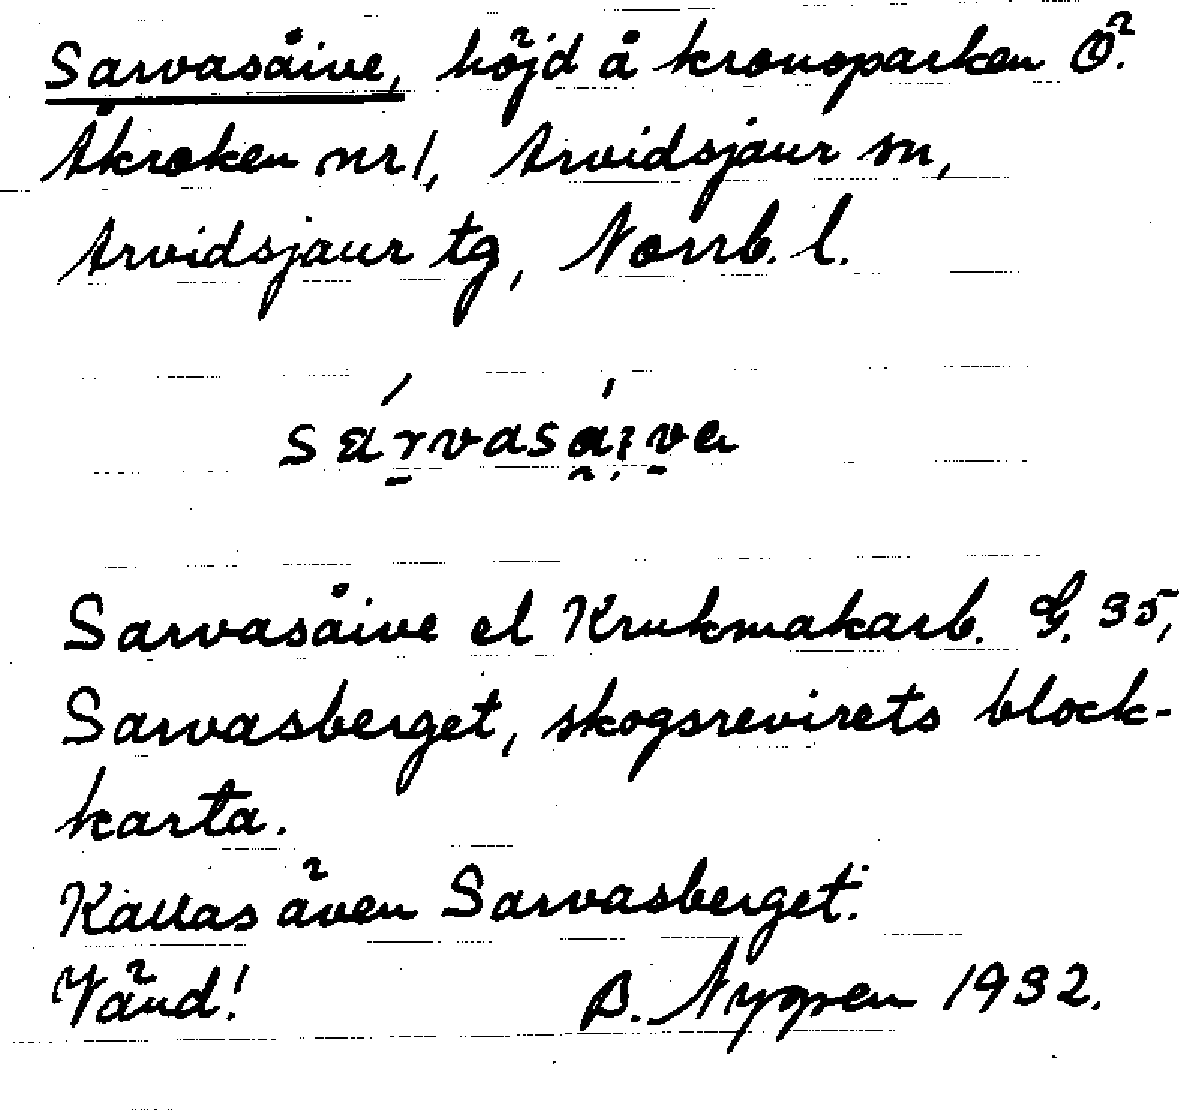 Sarvasåive, höjd å kronoparken Ö.
Åkroken nr 1, Arvidsjaur sn,
Arvidsjaur tg, Norrb. l.
sárvasái̯va
Sarvasåive el Krukmakarb. G. 35,
Sarvasberget, skogsrevirets block-
karta.
Kallas även Sarvasberget.
Vänd! B. Nygren 1932.